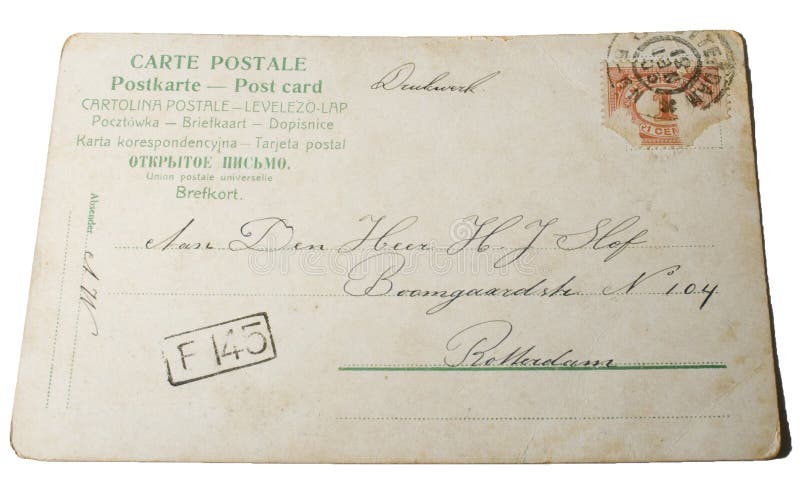 CARTE POSTALE
Postkarte — Post card
CARTOLINA POSTALE — LEVELEZÖ-LAP
Pocztówka — Briefkaart — Dopisnice
Karta korespondencyjna — Tarjeta postal
ОТКРЫТОЕ ПИСЬМО.
Union postale universelle
Brefkort.
Drukwerk
1
CENT
Absender.
N W
Aan Den Heer H. J Slof
Boomgaardstr N 104
Rotterdam
F 145
dreamstime